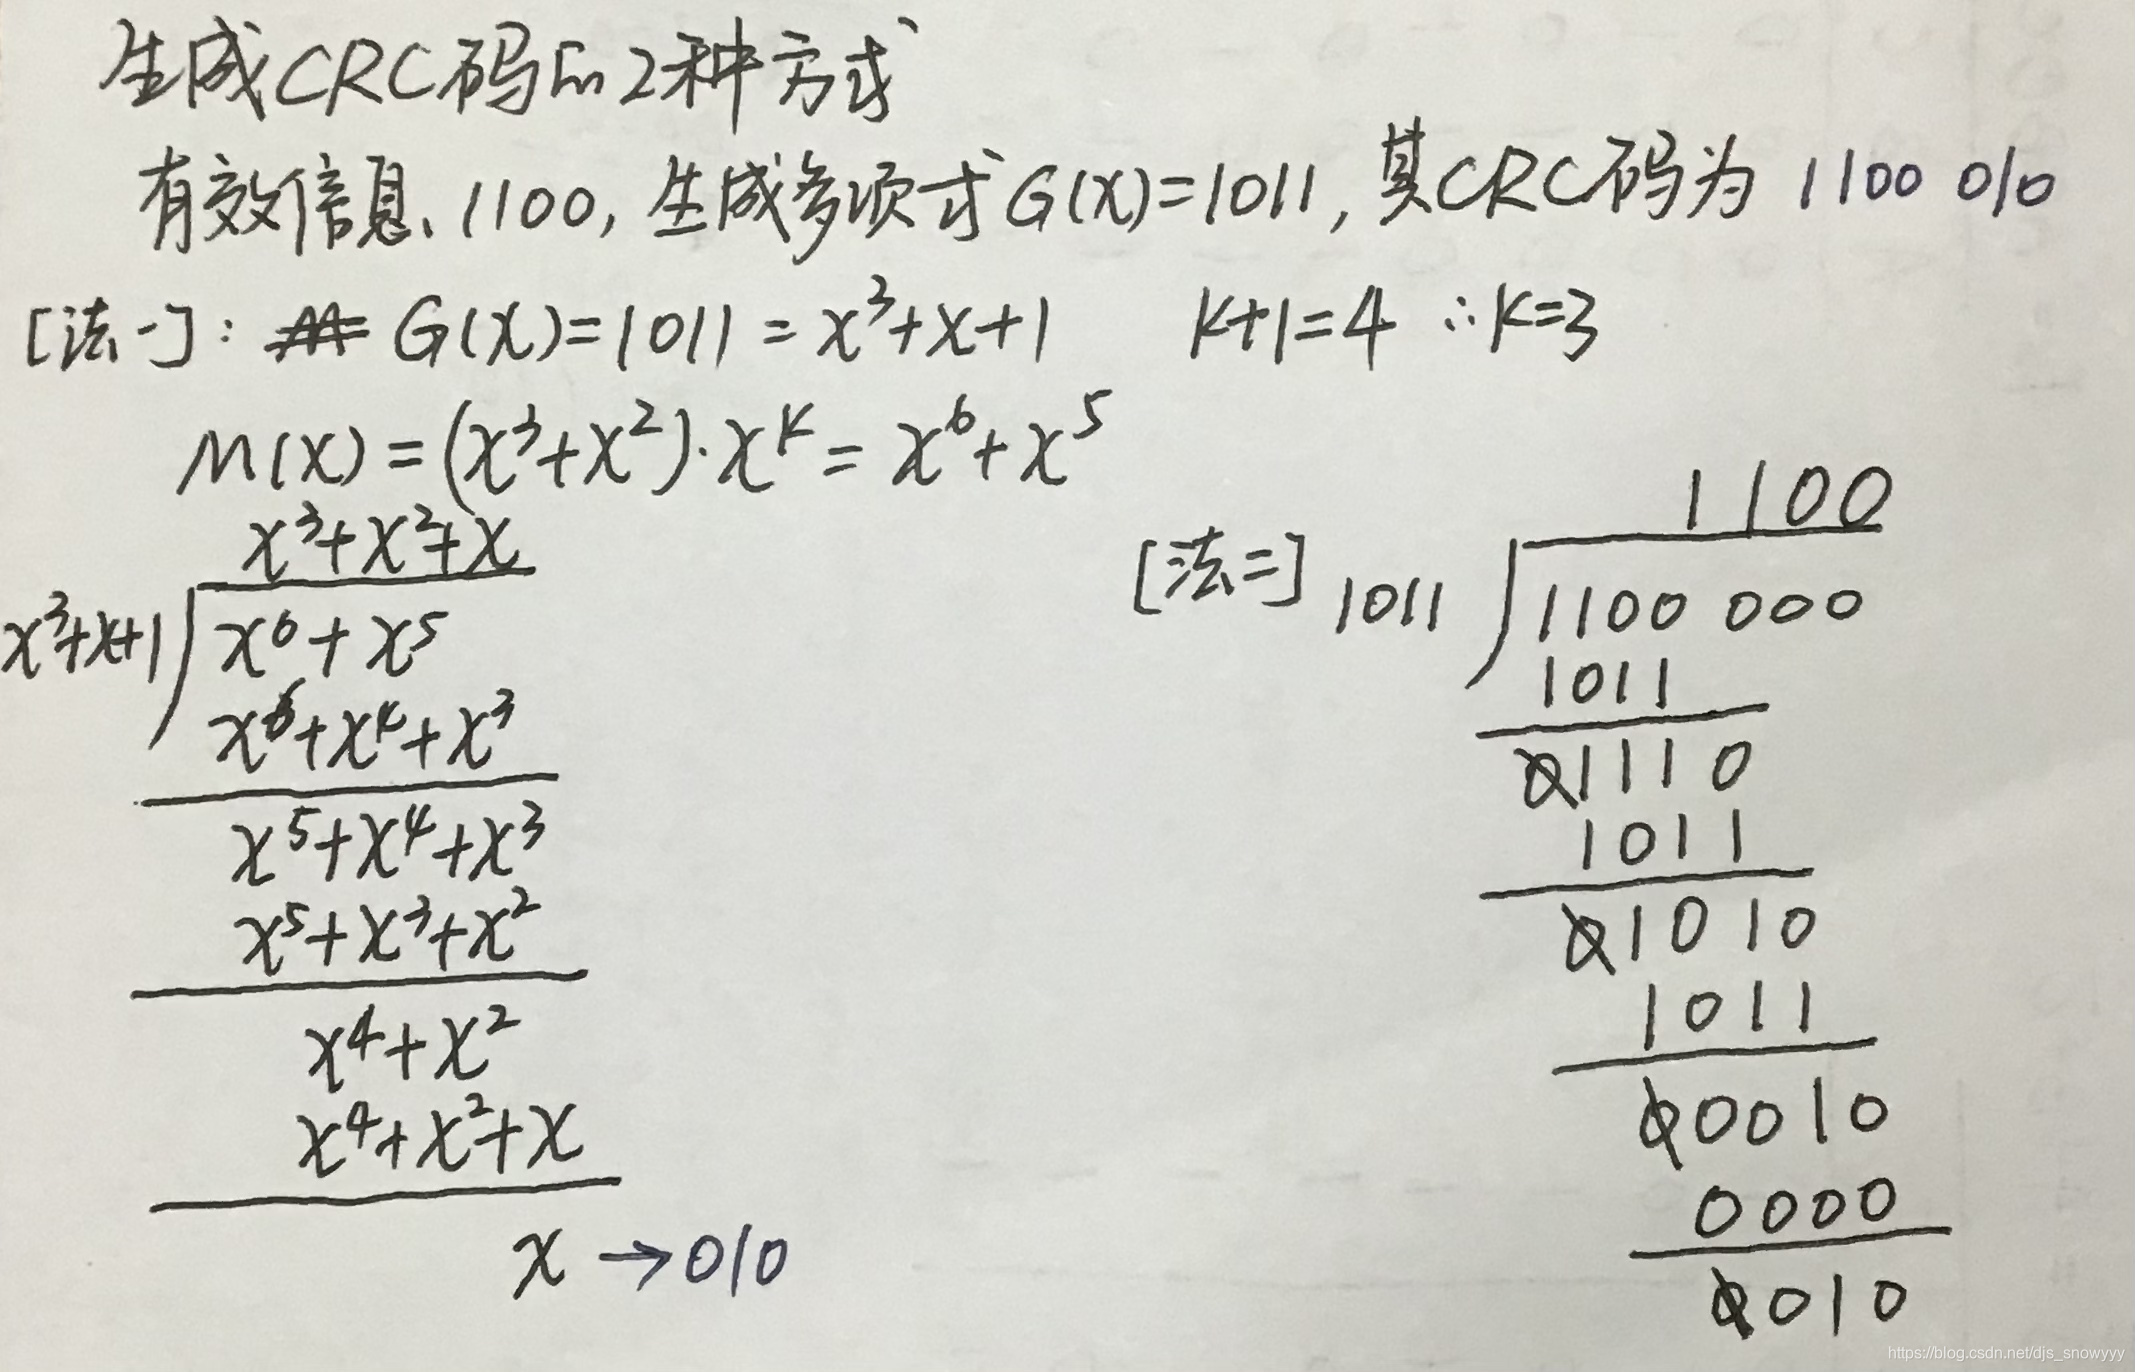 生成CRC码的2种方式
有效信息、1100, 生成多项式G(x)=1011, 其CRC码为 1100 010
[法一]: G(x)=1011=x³+x+1 k+1=4 ∴k=3
M(x)=(x³+x²)·x^k=x⁶+x⁵
x³+x²+x
x³+x+1
x⁶+x⁵
x⁶+x⁴+x³
x⁵+x⁴+x³
x⁵+x³+x²
x⁴+x²
x⁴+x²+x
x →010
[法二]
1100
1011
1100 000
1011
01110
1011
01010
1011
00010
0000
0010
https://blog.csdn.net/djs_snowyyy